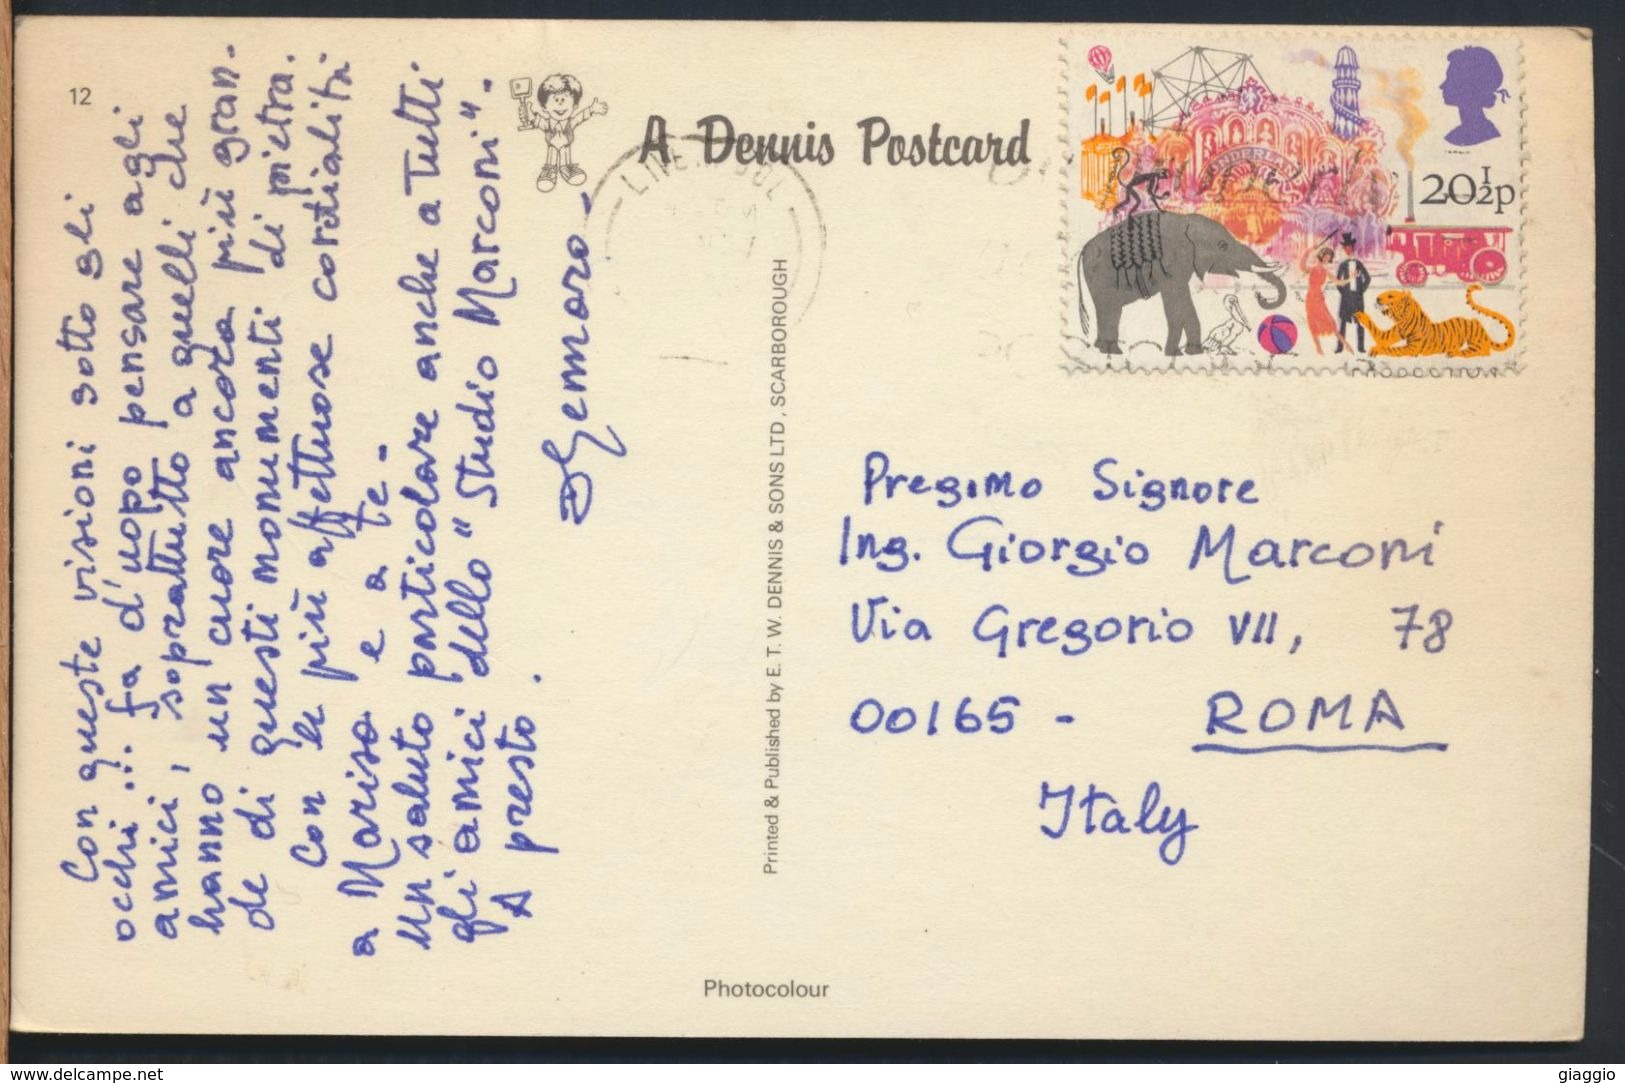 12
A Dennis Postcard
LIVERPOOL
20½p
Con queste visioni sotto gli
occhi... fa d'uopo pensare agli
amici, soprattutto a quelli che
hanno un cuore ancora più gran-
de di questi monumenti di pietra.
Con le più affettuose cordialità
a Marisa e a te-
un saluto particolare anche a tutti
gli amici dello "Studio Marconi".
A presto.
Printed & Published by E. T. W. DENNIS & SONS LTD, SCARBOROUGH
Preg.mo Signore
Ing. Giorgio Marconi
Via Gregorio VII, 78
00165 - ROMA
Italy
Photocolour
www.delcampe.net
giaggio